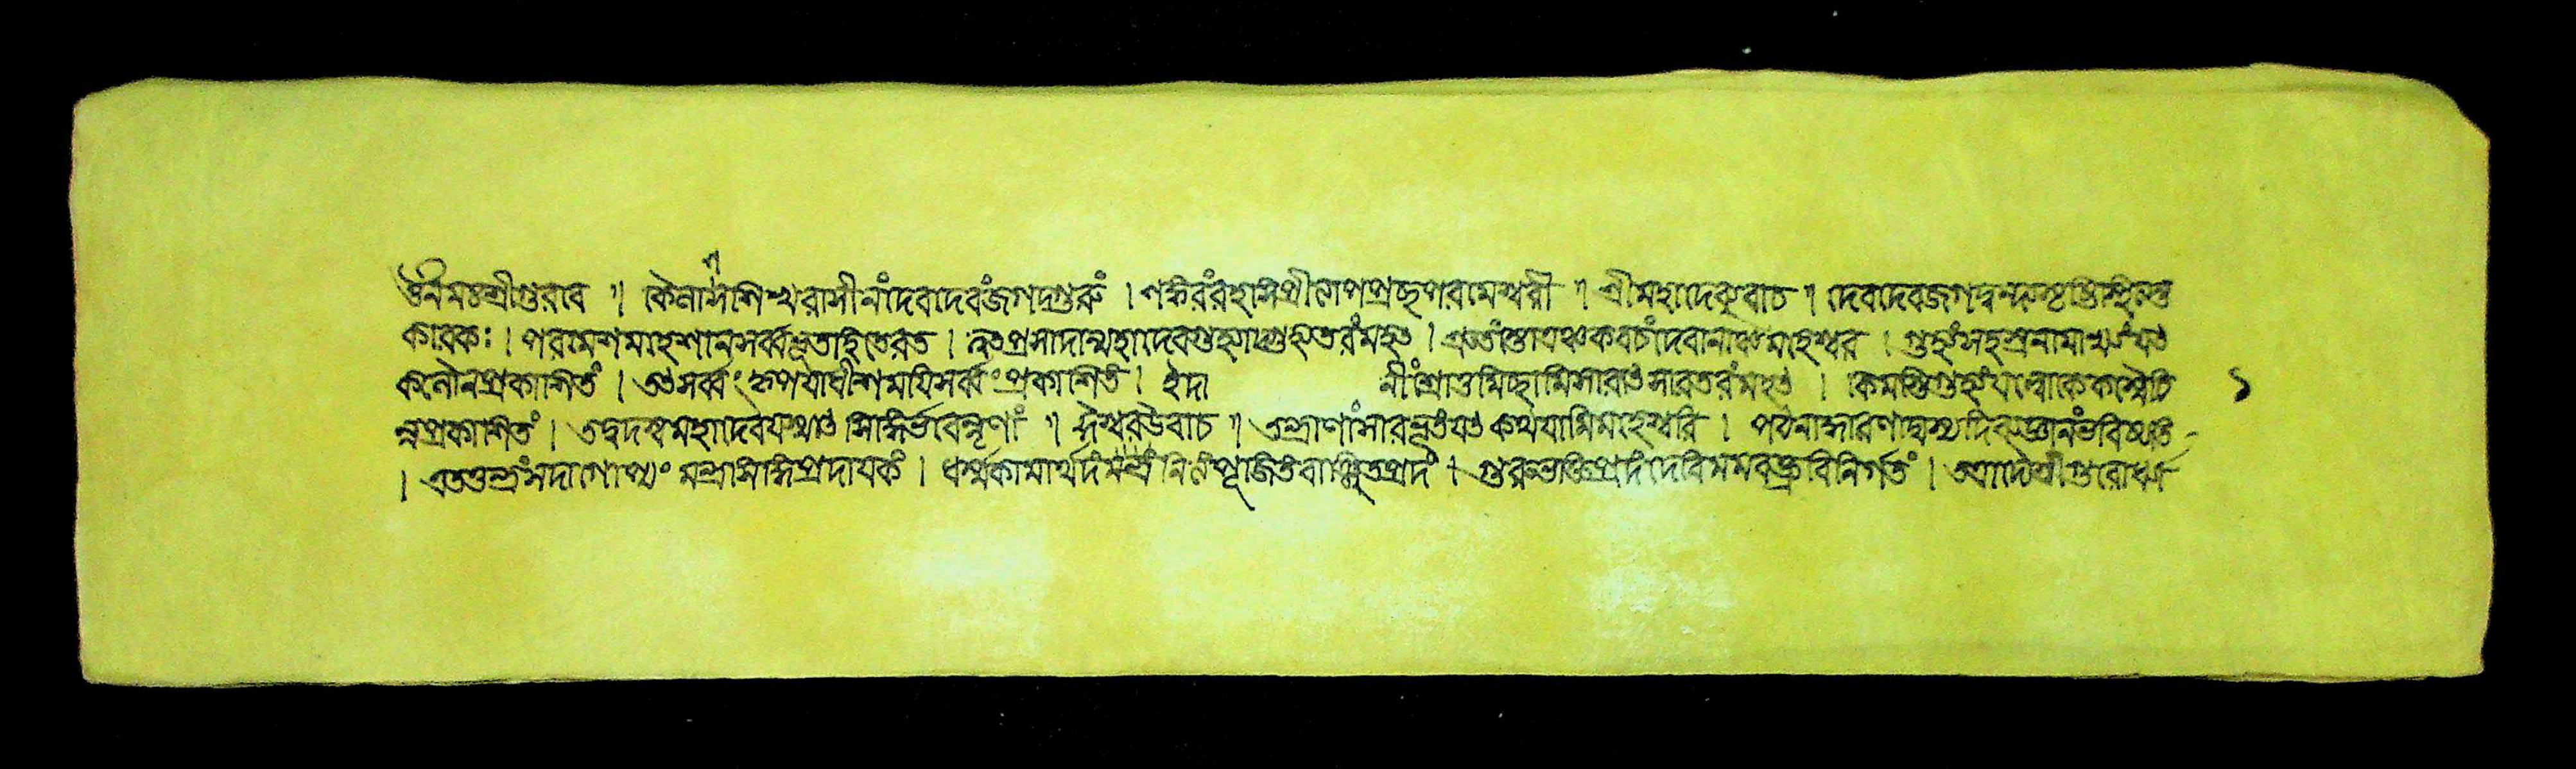 ওঁ নমঃ শ্রীগুরবে ॥ কৈলাসশিখরাসীনং দেবদেবং জগদ্গুরুং । শঙ্করং রহসি প্রীত্যা পপ্রচ্ছ পরমেশ্বরী ॥ শ্রীমহাদেব্যুবাচ ॥ দেবদেব জগদ্বন্দ্য সৃষ্টিস্থিত্যন্ত
কারক ঃ । পরমেশ মহেশান সর্ব্বভূতহিতেরত । ত্বৎপ্রসাদান্মহাদেব গুহ্যাদ্গুহ্যতরং মহৎ । এতৎ কবচং দেবানাঞ্চ মহেশ্বর । গুহ্যং সহস্রনামাখ্যং যৎ
প্রকাশিতং । তৎ সর্ব্বং কৃপয়াধীশ ময়ি সর্ব্বং প্রকাশিতং । ইদা নীং শ্রোতুমিচ্ছামি সারাৎসারতরং মহৎ । কিমস্তি গুহ্যং যল্লোকে কস্মৈচি ১
ন্ন প্রকাশিতং । তদ্বদস্ব মহাদেব যস্মাৎ সিদ্ধির্ভবেন্নৃণাং ॥ ঈশ্বর উবাচ ॥ তন্ত্রাণাং সারভূতং যৎ কথয়ামি মহেশ্বরি । পঠনাদ্ধারণাদ্যস্য দিব্যজ্ঞানং ভবিষ্যতি
। এতত্তন্ত্রং সদা গোপ্যং মন্ত্রসিদ্ধিপ্রদায়কং । ধর্ম্মকামার্থদং নিত্যং বাঞ্ছিতপ্রদং । গুরুভক্তিপ্রদং দেবি মম বক্ত্রবিনির্গতং । আদৌ শ্রীগুরোর্ধ্যা